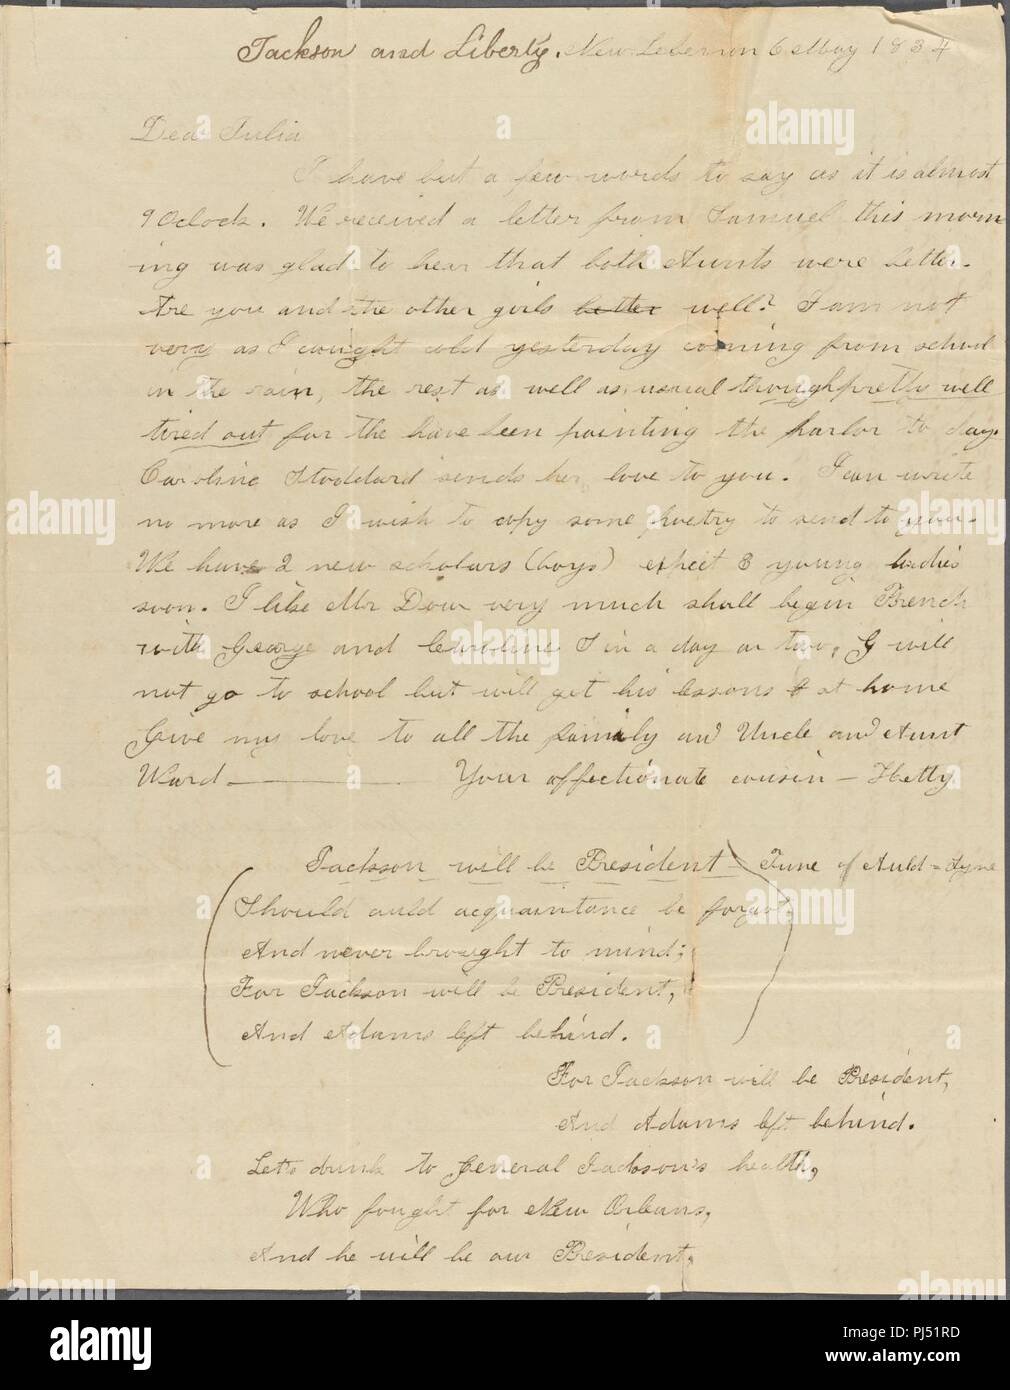 Jackson and Liberty. New Lebanon 6 May 1834
Dear Julia
I have but a few words to say as it is almost
9 Oclock. We received a letter from Samuel this morn
ing was glad to hear that both Aunts were better.
Are you and the other girls better well? I am not
very as I caught cold yesterday coming from school
in the rain, the rest as well as usual though pretty well
tired out for the have been painting the parlor to day.
Caroline Stoddard sends her love to you. I can write
no more as I wish to copy some poetry to send to you.
We have 2 new scholars (boys) expect 3 young ladies
soon. I like Mr Dow very much shall begin French
with George and Caroline I in a day or two, G will
not go to school but will get his lessons at home
Give my love to all the family and Uncle and Aunt
Ward — Your affectionate cousin — Hetty
Jackson will be President — Tune of Auld = Syne
Should auld acquaintance be forgot,
And never brought to mind;
For Jackson will be President,
And Adams left behind.
For Jackson will be President,
And Adams left behind.
Let's drink to General Jackson's health,
Who fought for New Orleans,
And he will be our President,
alamy
PJ51RD
www.alamy.com